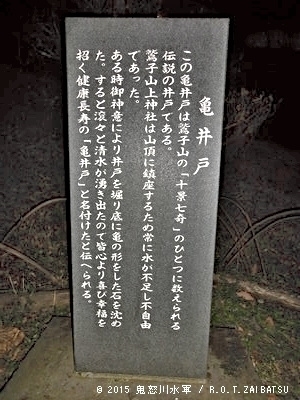 亀井戸
この亀井戸は鷲子山の「十景七奇」のひとつに数えられる
伝説の井戸である。
鷲子山上神社は山頂に鎮座するため常に水が不足し不自由
であった。
ある時御神意により井戸を掘り底に亀の形をした石を沈め
た。すると滾々と清水が湧き出たので皆心より喜び幸福を
招く健康長寿の「亀井戸」と名付けたと伝へられる。
© 2015 鬼怒川水軍 / R.O.T.ZAIBATSU